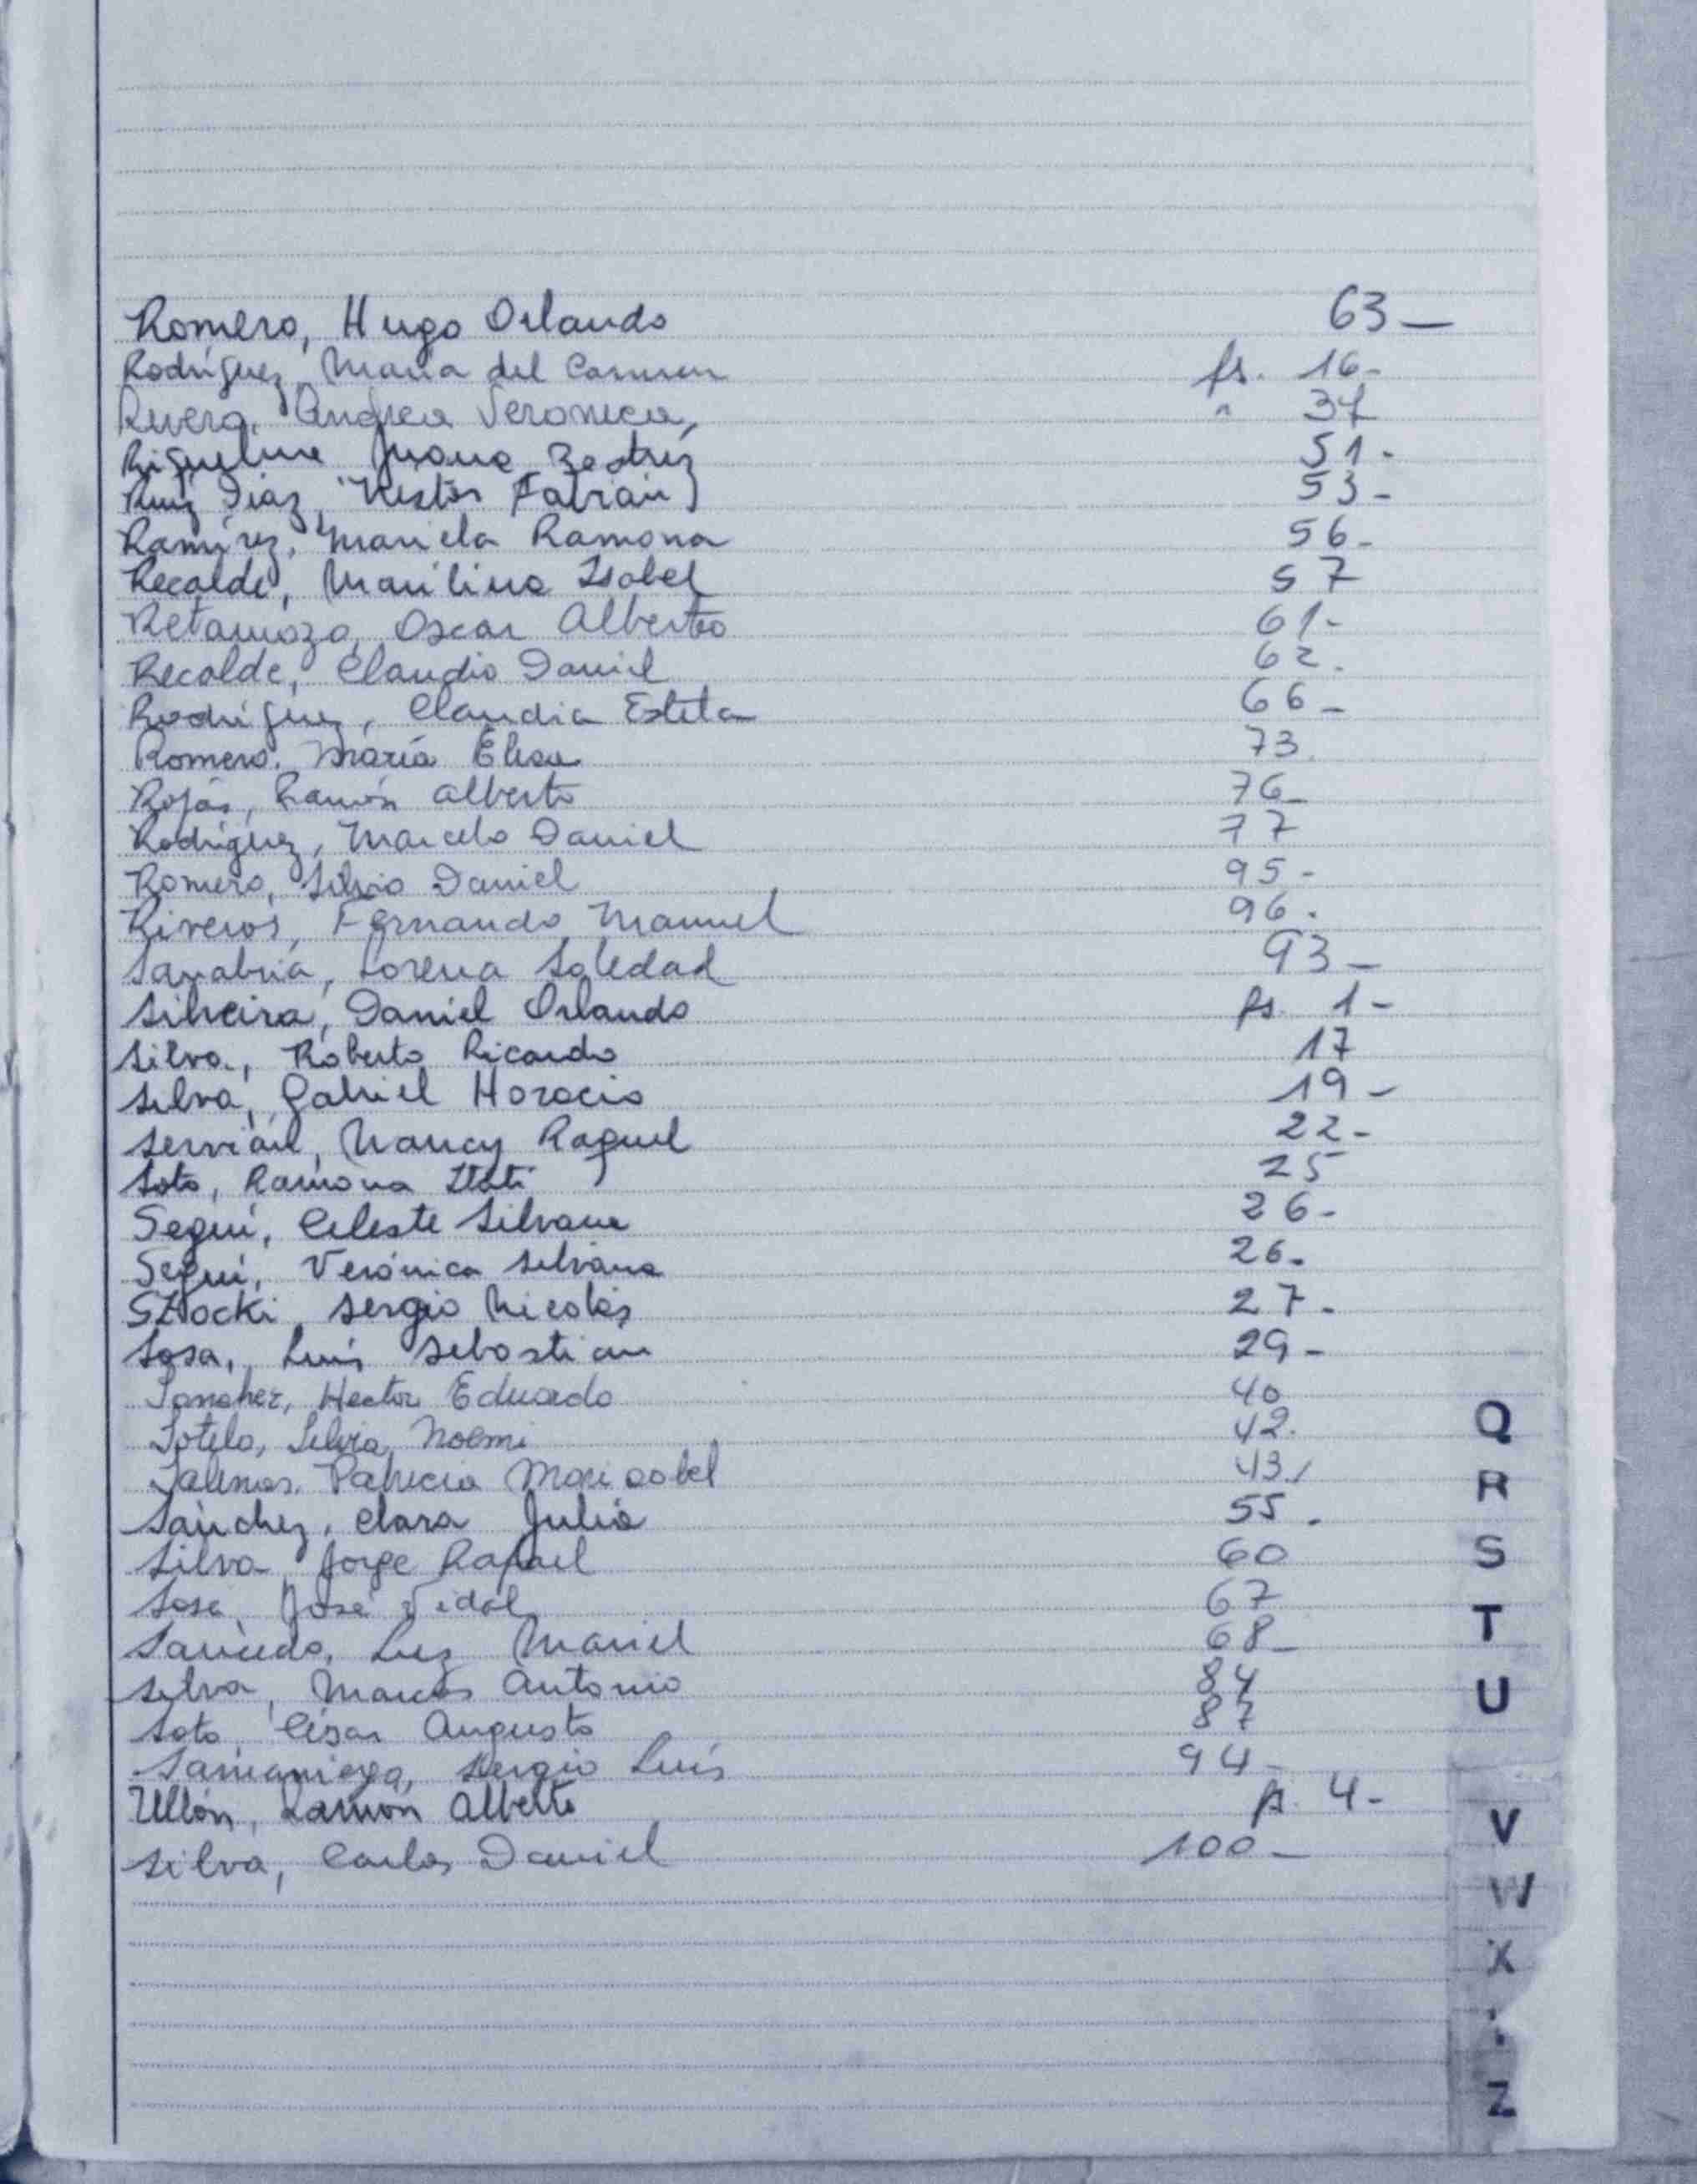 Romero, Hugo Orlando 63-
Rodríguez, María del Carmen fs. 16-
Rivero, Andrea Veronica, " 37
Riquelme Juana Beatriz 51-
Ruiz Diaz, Nestor Fabian 53-
Ramirez, Mariela Ramona 56-
Recalde, Marilina Isabel 57
Retamozo, Oscar Alberto 61-
Recalde, Claudio Daniel 62.
Rodríguez, Claudia Estela 66-
Romero. María Elisa 73.
Rojas, Ramón Alberto 76-
Rodriguez, Marcelo Daniel 77
Romero, Silvio Daniel 95-
Riveros, Fernando Manuel 96.
Sanabria, Lorena Soledad 93-
Silveira, Daniel Orlando fs. 1-
Silva, Roberto Ricardo 17
Silva, Gabriel Horacio 19-
Servián, Nancy Raquel 22-
Soto, Ramona Itati 25
Seguí, Celeste Silvana 26-
Seguí, Verónica Silvana 26-
Sergio Nicolás 27-
Sosa, Luis Sebastian 29-
Sanchez, Hector Eduardo 40
Sotelo, Silvia Noemi 42.
Salinas, Patricia Marisabel 43/
Sánchez, Clara Julia 55.
Silva Jorge Rafael 60
Sosa, José Vidal 67
Saucedo, Luz Mariel 68-
Silva, Marcos Antonio 84
Soto César Augusto 87
Samaniego, Sergio Luis 94-
Ullón, Ramón Alberto fs. 4-
Silva, Carlos Daniel 100-
Q
R
S
T
U
V
W
X
Z